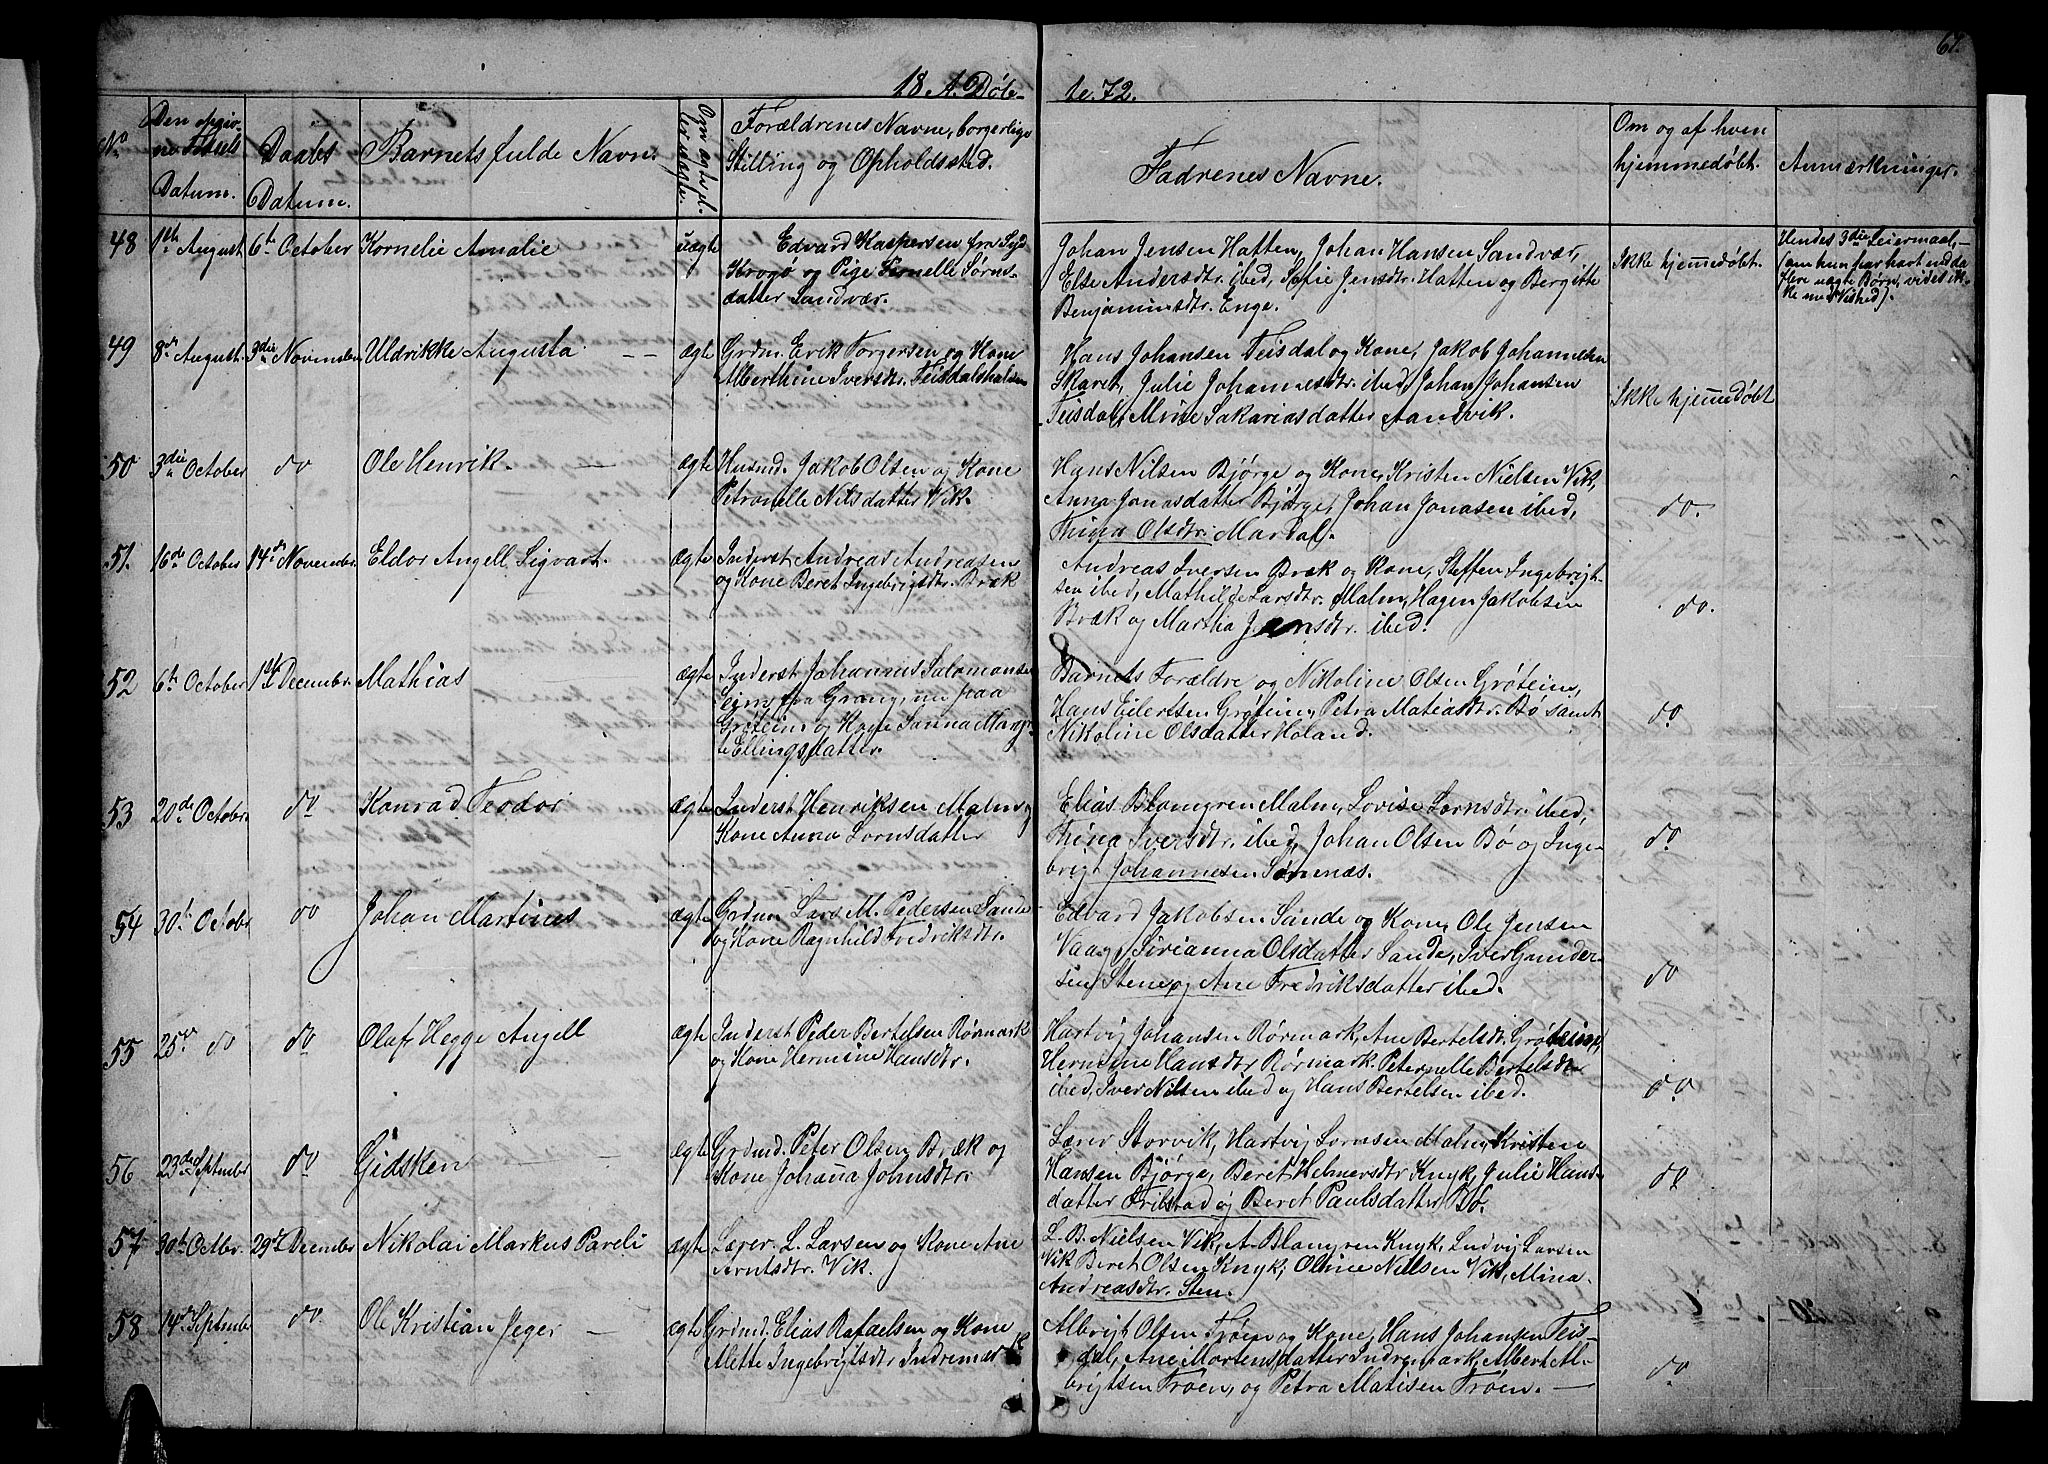 67.
18 A. Døb-
te. 72.
No
Den opgiv-
ne Fødsels
Datum.
Daabs
Datum.
Barnets fulde Navn.
Om ægte el-
ler uægte.
Forældrenes Navne, borgerlige
Stilling og Opholdssted.
Fadrenes Navne.
Om og af hvem
hjemmedøbt.
Anmærkninger.
48 1ste August 6te October Kornelie Amalie uægte
Edvard Kaspersen fra Syd
Krogø og Pige Pernelle Sørns-
datter Sandvær.
Johan Jensen Hatten, Johan Hansen Sandvær,
Else Andersdtr. ibed, Sofie Jensdtr. Hatten og Bergitte
Benjaminsdtr. Enge.
Ikke hjemmedøbt.
Hendes 3die Leiermaal,-
(om hun har havt endda
flere uægte Børn, vides ik-
ke med Vished).
49 8de August. 3die November Uldrikke Augusta - - ægte
Grdm. Erik Torgersen og Kone
Alberthine Iversdtr. Teisdalshalsen
Hans Johansen Teisdal og Kone, Jakob Johannesen
Skaret, Julie Johannesdtr. ibed, Johan Johansen
Teisdal, Mine Sakariasdatter Aandvik.
Ikke hjemmedøbt
50 3die October do Ole Henrik. - ægte
Husmd. Jakob Olsen og Kone
Petronelle Nilsdatter Vik.
Hans Nilsen Bjørge og Kone, Kristen Nielsen Vik,
Anna Jonasdatter Bjørge, Johan Jonasen ibed,
Thina Olsdtr. Mardal.
do.
51. 16de October 14de November Eldor Angell Sigvart. ægte
Inderst Andreas Andreasen
og Kone Beret Ingebrigtsdtr. Bræk
Andreas Iversen Bræk og Kone, Steffen Ingebrigt-
sen ibed, Mathilde Larsdtr. Malm, Hagen Jakobsen
Bræk og Martha Jensdtr. ibed.
do.
52 6te October 1ste December Mathias ægte
Inderst Johannes Salomonsen
Leim fra Grong, nu paa
Grøteim og Kone Sanna Margre-
te Ellingsdatter.
Barnets Forældre og Nikoline Olsen Grøteim,
Hans Eilertsen Grøtim, Petra Matiasdtr. Bø samt
Nikoline Olsdatter Holand.
do
53 20de October do Konrad Teodor ægte
Inderst Henriksen Malm og
Kone Anna Lornsdatter
Elias Blomgren Malm, Lovise Lornsdtr. ibed,
Thina Iversdtr. ibed, Johan Olsen Bø og Inge-
brigt Johannesen Sørenæs.
do
54 30te October do Johan Martines ægte
Grdm Lars M. Pedersen Sande
og Kone Ragnhild Fredriksdtr.
Edvard Jakobsen Sande og Kone, Ole Jensen
Vaag, Sirianna Olsdatter Sande, Iver Gunder-
sen Stene og Ane Fredriksdatter ibed.
do
55 25de do do Olaf Hegge Angell ægte
Inderst Peder Bertelsen Rørmark
og Kone Hermine Hansdtr.
Hartvig Johansen Rørmark, Ane Bertelsdtr. Grøteim,
Hermine Hansdtr Rørmark, Peternelle Bertelsdtr
ibed, Iver Nilsen ibed og Hans Bertelsen ibed.
do
56 23de September do Gidsken - ægte
Grdmd. Peter Olsen Bræk og
Kone Johanna Johnsdtr.
Lærer Storvik, Hartvig Lornsen Malm, Kristen
Hansen Bjørge, Beret Helmersdtr. Knyk, Julie Hans-
datter Fribstad og Beret Paulsdatter Bø.
do
57 30te Octbr. 29de December Nikolai Markus Pareli ægte
Lærer. L. Larsen og Kone Ane
Arntsdtr. Vik.
L. B. Nielsen Vik, A. Blomgren Knyk, Ludvig Larsen
Vik Beret Olsen Knyk, Oline Nielsen Vik, Mina
Andreasdtr. Sten.
58 14de September do Ole Kristian Jeger - ægte
Grdmd. Elias Rafaelsen og Kone
Alette Ingebrigtsdtr. Indremark
Albrigt Olsen Trøen og Kone, Hans Johansen Teis-
dal, Ane Mortensdatter Indremark, Albert Al-
brigtsen Trøen, og Petra Matisen Trøen. -
do